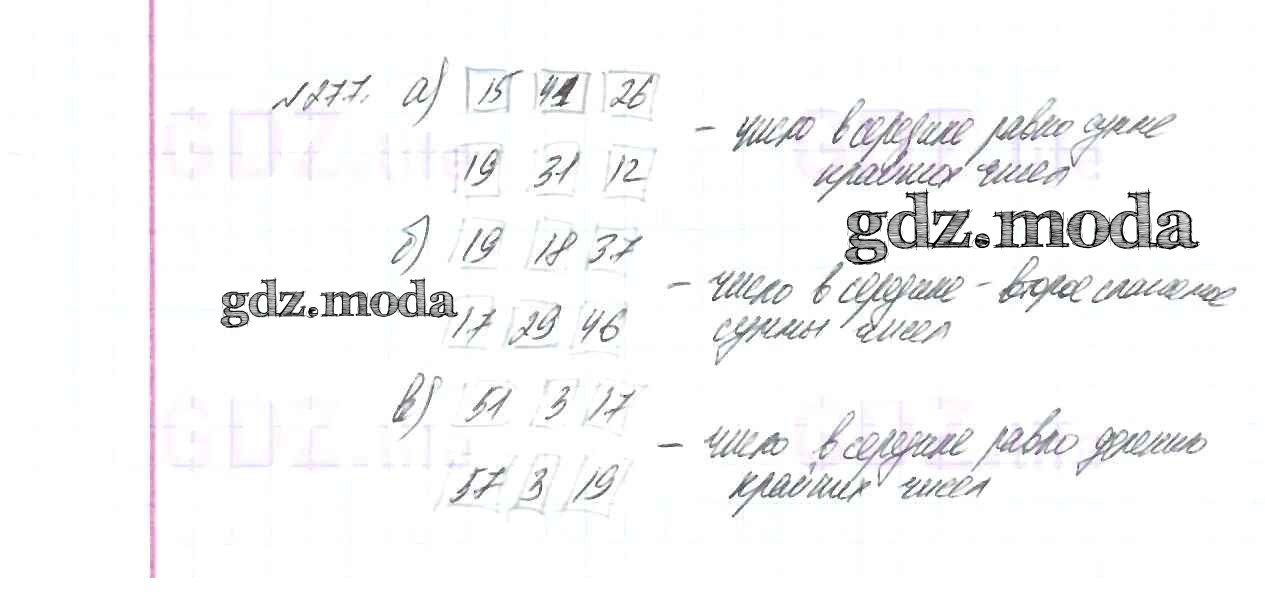 №277. а) 15 41 26
— число в середине равно сумме
крайних чисел
19 31 12
gdz.moda
б) 19 18 37
— число в середине - второе слагаемое
суммы чисел
gdz.moda
17 29 46
в) 51 3 17
— число в середине равно делению
крайних чисел
57 3 19